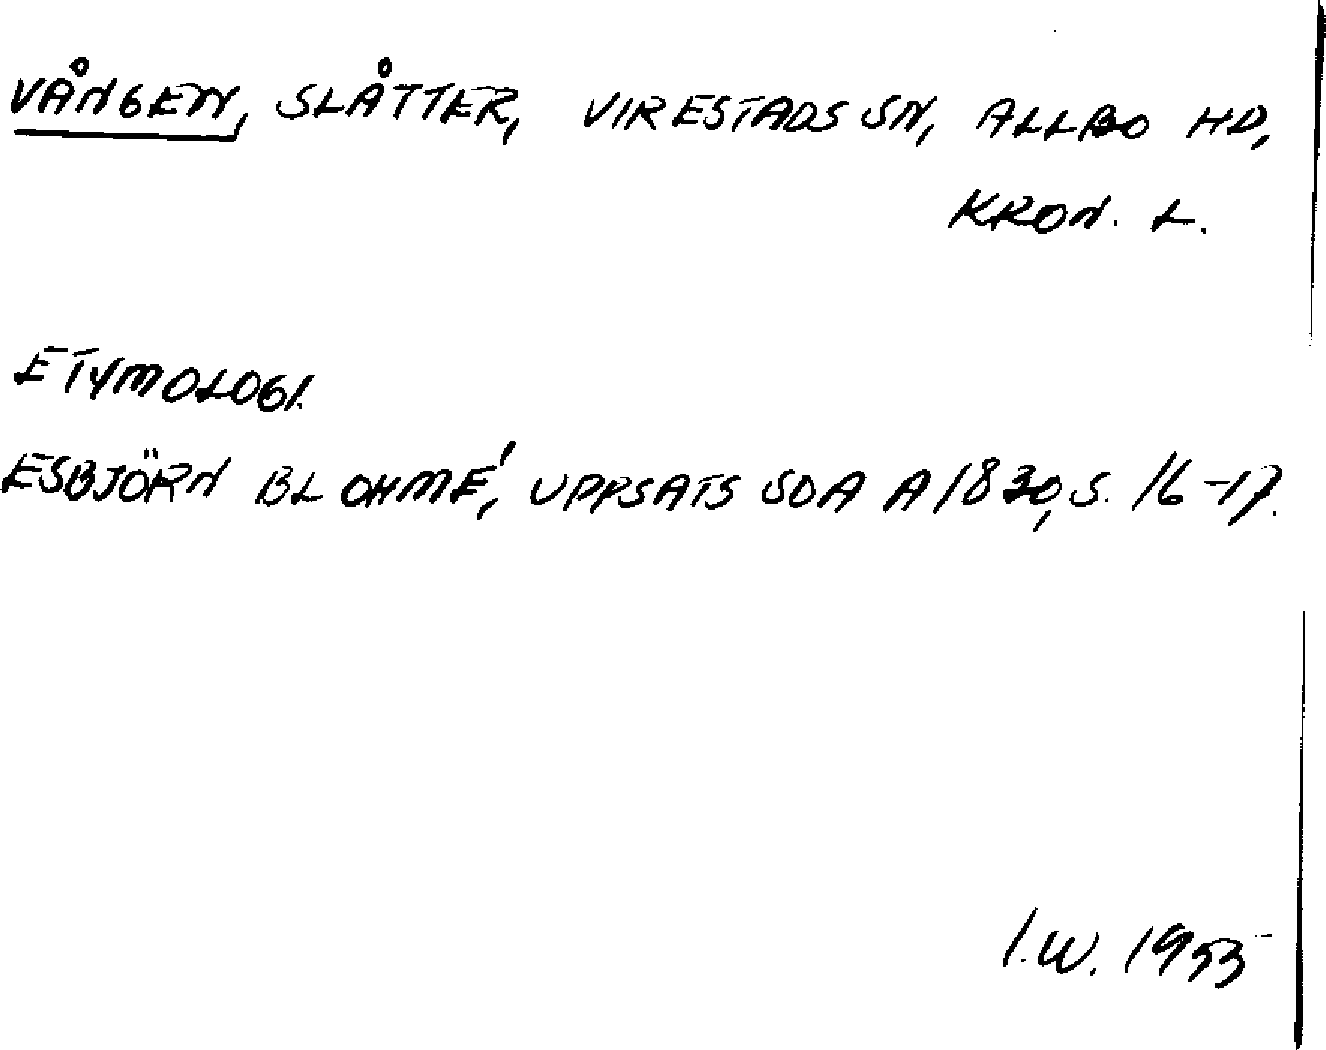 VÅNGEN, SLÅTTER, VIRESTADS SN, ALLBO HD,
KRON. L.
ETYMOLOGI.
ESBJÖRN BLOHMÉ, UPPSATS SOA A 1830, S. 16-17.
I.W. 1953